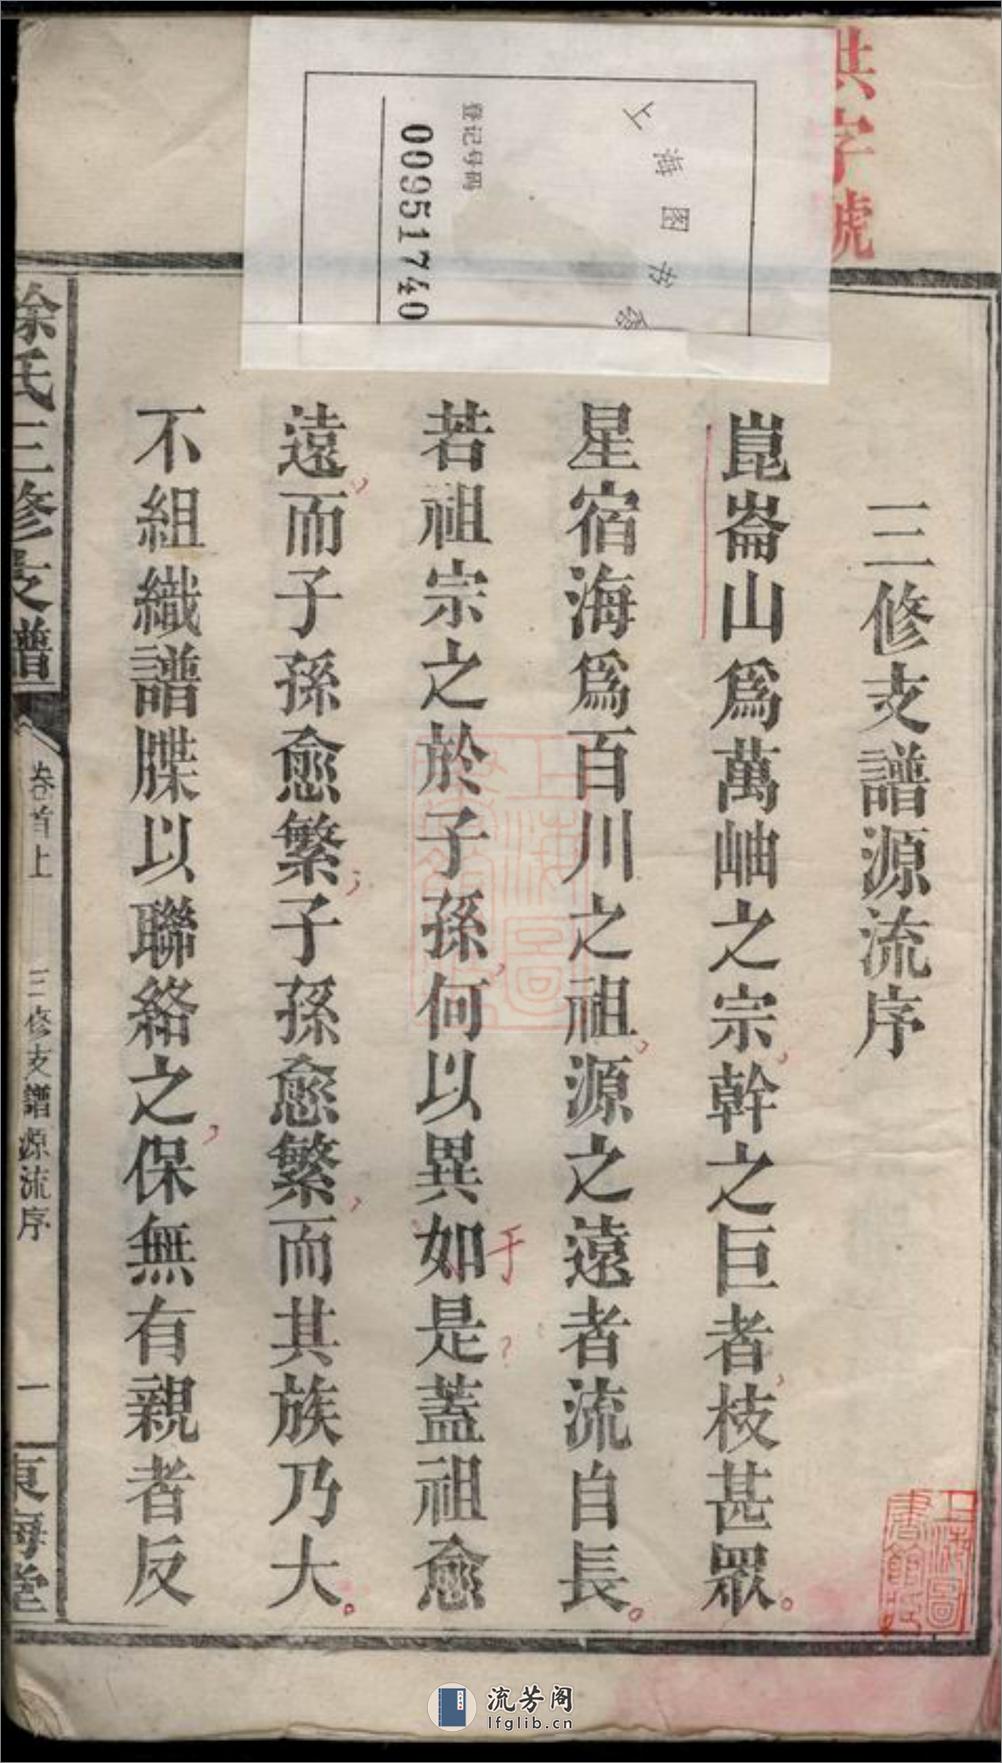 洪字號
上海图书
登记号码
00951740
三修支譜源流序
崑崙山爲萬岫之宗幹之巨者枝甚眾
星宿海爲百川之祖源之遠者流自長
若祖宗之於子孫何以異如是蓋祖愈
于
遠而子孫愈繁子孫愈繁而其族乃大
不組織譜牒以聯絡之保無有親者反
徐氏三修支譜
卷首上
三修支譜源流序
一
東海堂
上海圖書館藏
上海圖書館藏
流芳阁
lfglib.cn